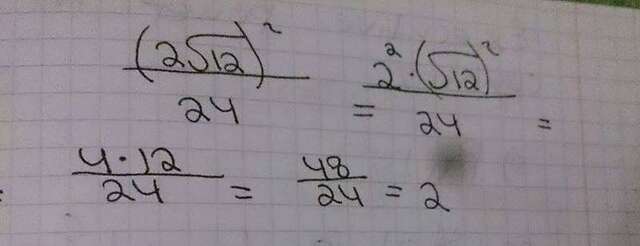 (2√12)² / 24 = 2² · (√12)² / 24 =
= 4 · 12 / 24 = 48 / 24 = 2